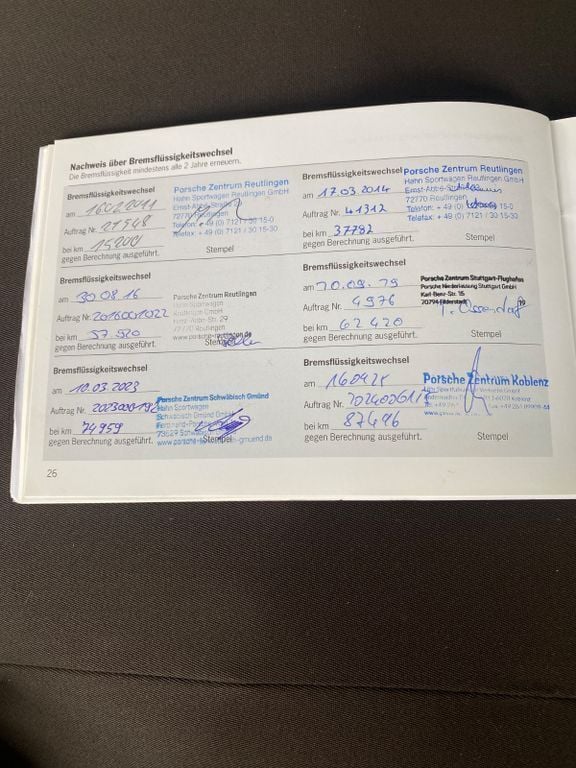 Nachweis über Bremsflüssigkeitswechsel
Die Bremsflüssigkeit mindestens alle 2 Jahre erneuern.
Bremsflüssigkeitswechsel
am 16.02.2011
Auftrag Nr. 21548
bei km 15200
gegen Berechnung ausgeführt.
Porsche Zentrum Reutlingen
Hahn Sportwagen Reutlingen GmbH
72770 Reutlingen
Telefon: + 49 (0) 7121 / 30 15-0
Telefax: + 49 (0) 7121 / 30 15-30
Stempel
Bremsflüssigkeitswechsel
am 17.03.2014
Auftrag Nr. 41312
bei km 37782
gegen Berechnung ausgeführt.
Porsche Zentrum Reutlingen
Hahn Sportwagen Reutlingen GmbH
72770 Reutlingen
Telefon: + 49 (0) 15-0
Telefax: + 49 (0) 7121 / 30 15-30
Stempel
Bremsflüssigkeitswechsel
am 30.08.16
Auftrag Nr. 2016001022
bei km 57.520
gegen Berechnung ausgeführt.
Porsche Zentrum Reutlingen
Hahn Sportwagen
Reutlingen GmbH
Ernst-Abbe-Str. 29
72770 Reutlingen
www.porsche-reutlingen.de
Stempel
Bremsflüssigkeitswechsel
am 10.09.19
Auftrag Nr. 4976
bei km 62420
gegen Berechnung ausgeführt.
Porsche Zentrum Stuttgart-Flughafen
Porsche Niederlassung Stuttgart GmbH
Karl-Benz-Str. 15
70794 Filderstadt
19
Stempel
Bremsflüssigkeitswechsel
am 10.03.2023
Auftrag Nr.
bei km 74959
gegen Berechnung ausgeführt.
Porsche Zentrum Schwäbisch Gmünd
Hahn Sportwagen
Schwäbisch Gmünd GmbH
73529
Stempel
Bremsflüssigkeitswechsel
am 160425
Auftrag Nr.
bei km 87496
gegen Berechnung ausgeführt.
Porsche Zentrum Koblenz
Stempel
26